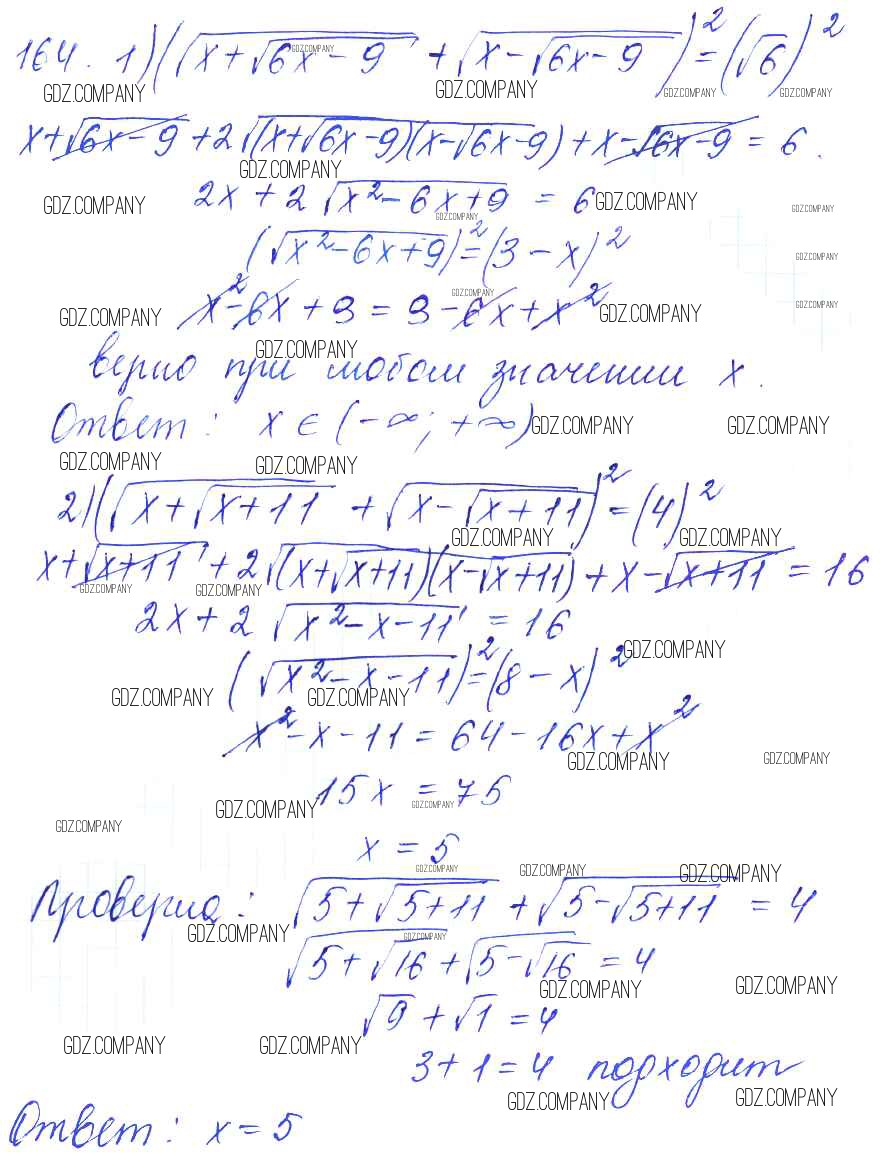 164. 1) (√(x+√(6x-9)) + √(x-√(6x-9)))² = (√6)²
GDZ.COMPANY GDZ.COMPANY GDZ.COMPANY GDZ.COMPANY GDZ.COMPANY
x+√(6x-9) + 2√((x+√(6x-9))(x-√(6x-9))) + x-√(6x-9) = 6.
GDZ.COMPANY
2x + 2√(x²-6x+9) = 6
GDZ.COMPANY GDZ.COMPANY GDZ.COMPANY GDZ.COMPANY
(√(x²-6x+9))² = (3-x)²
GDZ.COMPANY
x²-6x+9 = 9-6x+x²
GDZ.COMPANY GDZ.COMPANY GDZ.COMPANY GDZ.COMPANY
GDZ.COMPANY
верно при любом значении x.
Ответ: x ∈ (-∞; +∞)
GDZ.COMPANY GDZ.COMPANY
GDZ.COMPANY GDZ.COMPANY
2) (√(x+√(x+11)) + √(x-√(x+11)))² = (4)²
GDZ.COMPANY GDZ.COMPANY
x+√(x+11) + 2√((x+√(x+11))(x-√(x+11))) + x-√(x+11) = 16
GDZ.COMPANY GDZ.COMPANY
2x + 2√(x²-x-11) = 16
GDZ.COMPANY
(√(x²-x-11))² = (8-x)²
GDZ.COMPANY GDZ.COMPANY
x²-x-11 = 64-16x+x²
GDZ.COMPANY GDZ.COMPANY
15x = 75
GDZ.COMPANY GDZ.COMPANY
GDZ.COMPANY
x = 5
GDZ.COMPANY GDZ.COMPANY GDZ.COMPANY
Проверка: √(5+√(5+11)) + √(5-√(5+11)) = 4
GDZ.COMPANY GDZ.COMPANY
√(5+√16) + √(5-√16) = 4
GDZ.COMPANY GDZ.COMPANY
√9 + √1 = 4
GDZ.COMPANY GDZ.COMPANY
3+1=4 подходит
GDZ.COMPANY GDZ.COMPANY
Ответ: x = 5